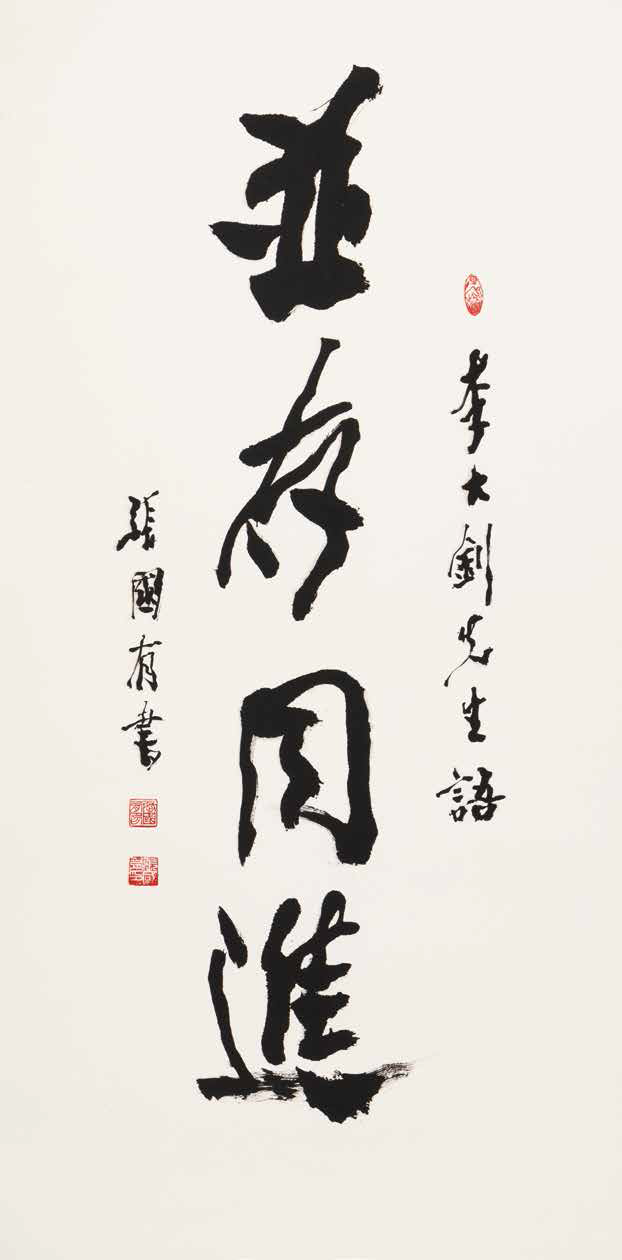 李大釗先生語
並存同進
張國有書